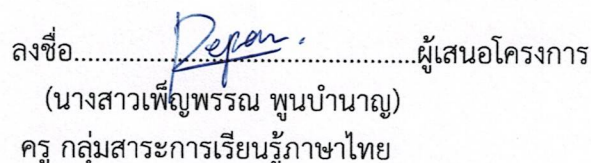 ลงชื่อ..............................................ผู้เสนอโครงการ
(นางสาวเพ็ญพรรณ พูนบำนาญ)
ครู กลุ่มสาระการเรียนรู้ภาษาไทย